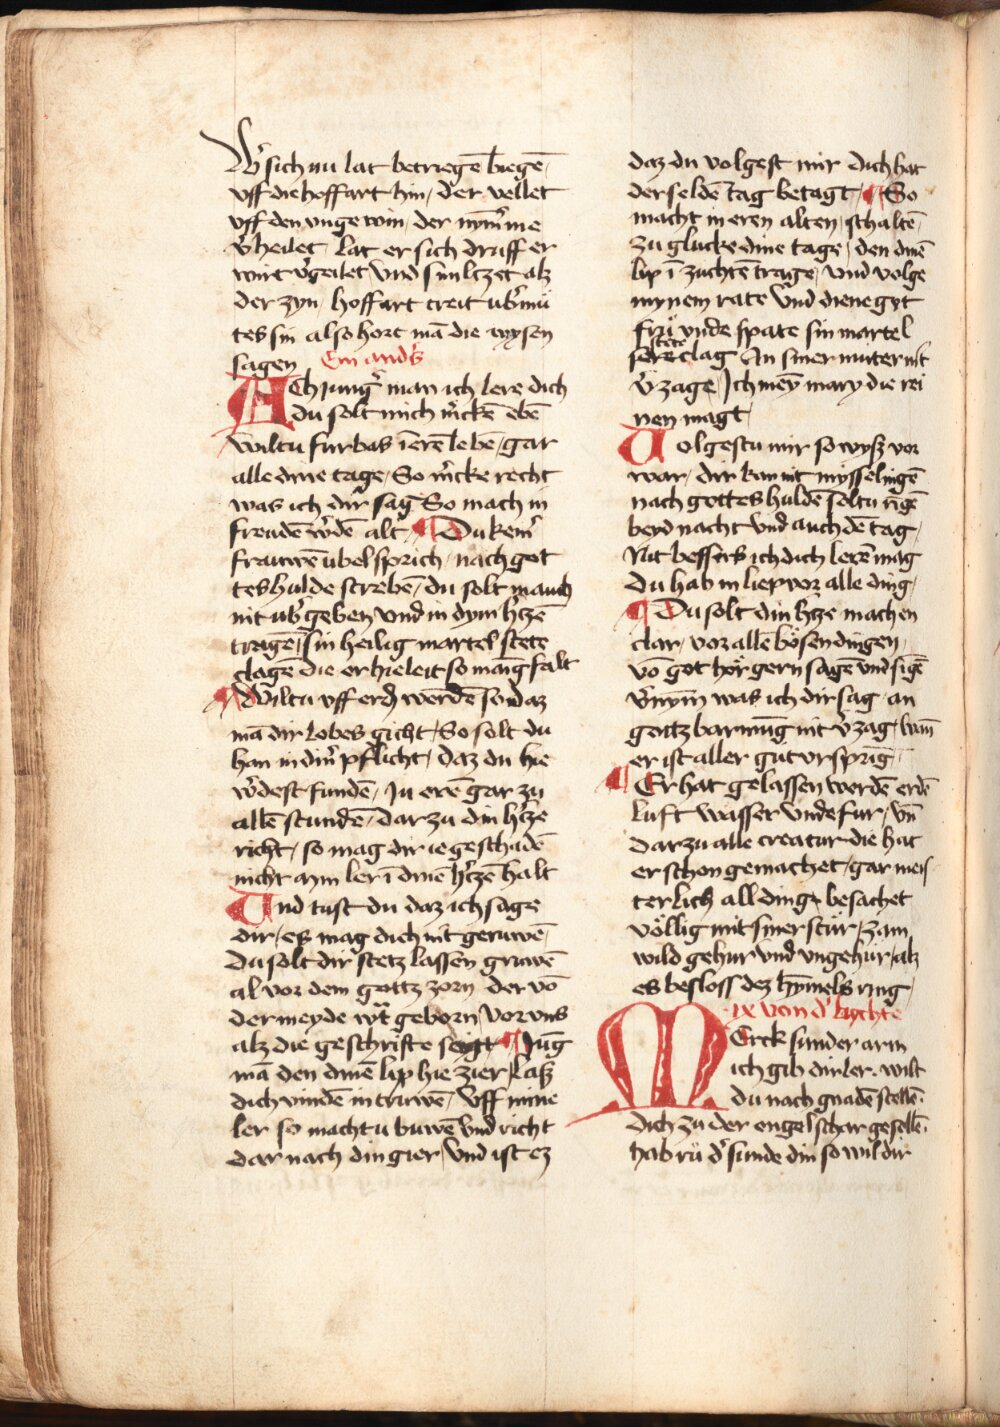 W's sich nu lat betriegē biegē
vff die hoffart hin / der vellet
vff den vnge win / der nym̄'me
v'heilet / lat er sich druff er
wirt v'geilet vnd sin ltzet alz
der zyn / hoffart treit ub'mu
tes sin also hort mā die wysen
sagen Ein and's
ACh jung' man ich lere dich
du solt mich m'ckē ebē
wiltu furbas ī erē lebē / gar
alle dine tage / So m'cke recht
was ich dir sag So mach in
freudē w'dē alt ¶ Du kein'
frauwē ubel sprich / nach got
tes hulde strebē / du solt mauch
nit ub'geben / vnd in dym h'tzē
tragē / sin heilig martel stete
clagē die er hie leit so manḡ falt
¶ Wiltu vff erd' werdē so daz
mā dir lobes gicht / So solt du
han in din' pflicht / daz du hie
w'dest fundē / Ju erē gar zu
allē stundē / dar zu din h'tze
richt / so mag dir ie geschadē
nicht aym ler ī dinē h'tzē halt
Vnd tust du daz ich sage
dir / es mag dich nit geruwē /
Du solt dir stetz lassen gruwē
al vor dem gottz zorn der vō
der meyde w't geborn / vor vns
alz die geschrifte seyt ¶ Jūg
mā den dinē lip hie zier / Laß
dich vindē in truwē / vff mine
ler so machtu buwē vnd richt
dar nach din gier / vnd ist ez
daz du volgest mir dich hat
der selde tag betagt ¶ So
macht in eren alten / schaltē
zu glucke dine tage / den dinē
lip ī zuchtē trage / vnd volge
mynem rate vnd diene got
frü vnde spate sin martel
stete clag An siner muter nit
v'zage / Jch mey' mary die rei
nen magt
Volgestu mir so wyß vor
war / dir kan nit mysselingē
nach gottes huldē soltu rīgē
beyd nacht vnd auch dē tag /
Nit bessers ich dich lerē mag
du hab in liep vor alle ding /
¶ Du solt din h'tze machen
clar / vor allē bösen dingen /
vō got hör gern sagē vnd sīgē
v'nym was ich dir sag an
gottz barmūg nit v'zag / wan̄
er ist aller gut vrsprīg /
¶ Er hat gelassen werdē erdē
luft wasser vnde fur / vn̄
dar zu alle creatur die hat
er schon gemachet / gar meis
terlich all ding besachet
völlig mit siner stür / zam
wild gehur vnd vngehür / alz
es besloss dez hȳmels ring /
ix von d' bychte
MErck sunder arm
ich gib dir ler . wilt
du nach gnadē stellē .
dich zu der engel schar gesellē .
hab rü d' sunde din so wil dir